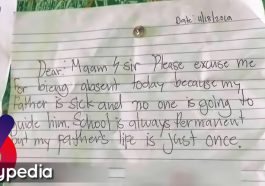 Date: 11/18/2019
Dear: Maam / sir Please excuse me
for being absent today because my
Father is sick and no one is going to
guide him. School is always Permanent
but my father's life is just once.
ypedia